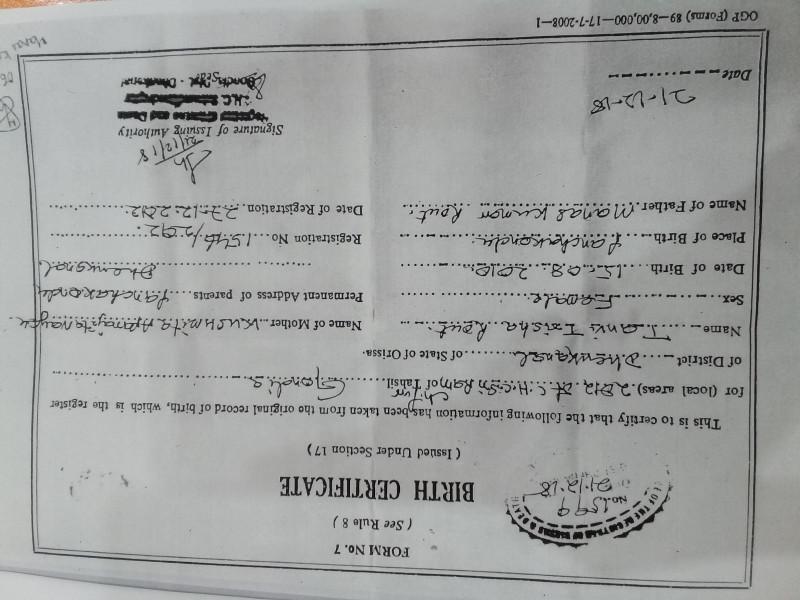 FORM No. 7
( See Rule 8 )
No. 1599
21.12.18
BIRTH CERTIFICATE
( Issued Under Section 17 )
This is to certify that the following information has been taken from the original record of birth, which is the register
for (local areas) 2012 of C.H.C, of Tahsil Gondia
of District Dhenkanal of State of Orissa.
Name Tanvi Trisha Rout.
Name of Mother Kushmita Aparajita Nayak
Sex Female
Permanent Address of parents
Dhenkanal.
Date of Birth 15.08.2010.
Place of Birth
Registration No. /2012.
Name of Father Manas Kumar Rout.
Date of Registration 27.12.2012.
21/12/18
Signature of Issuing Authority
Date 21-12-18
Seal
OGP (Forms) 89—8,00,000—17-7-2008—1